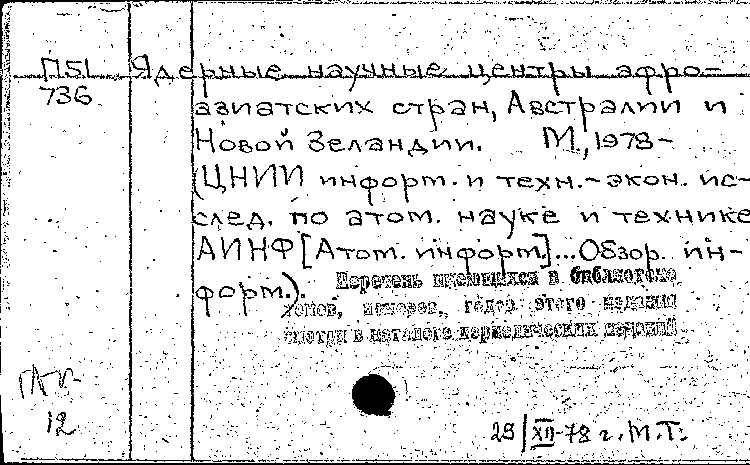 П51 Ядерные научные центры афро-
736 азиатских стран, Австралии и
Новой Зеландии. М., 1978-
(ЦНИИ информ. и техн.-экон. ис-
след. по атом. науке и технике
АИНФ [Атом. информ.]... Обзор. ин-
форм.).
Перечень имеющихся в библиотеке
томов, номеров, годов этого издания
смотри в каталоге периодических изданий
12
29/XII-78 г. М.Т.